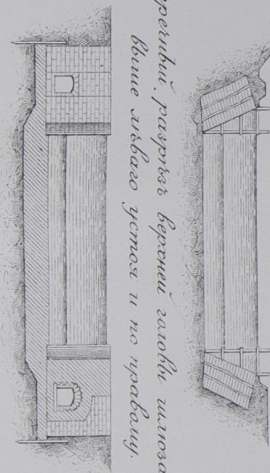 речный разрѣзъ верхней головы шлюза
выше лѣваго устоя и по правому.